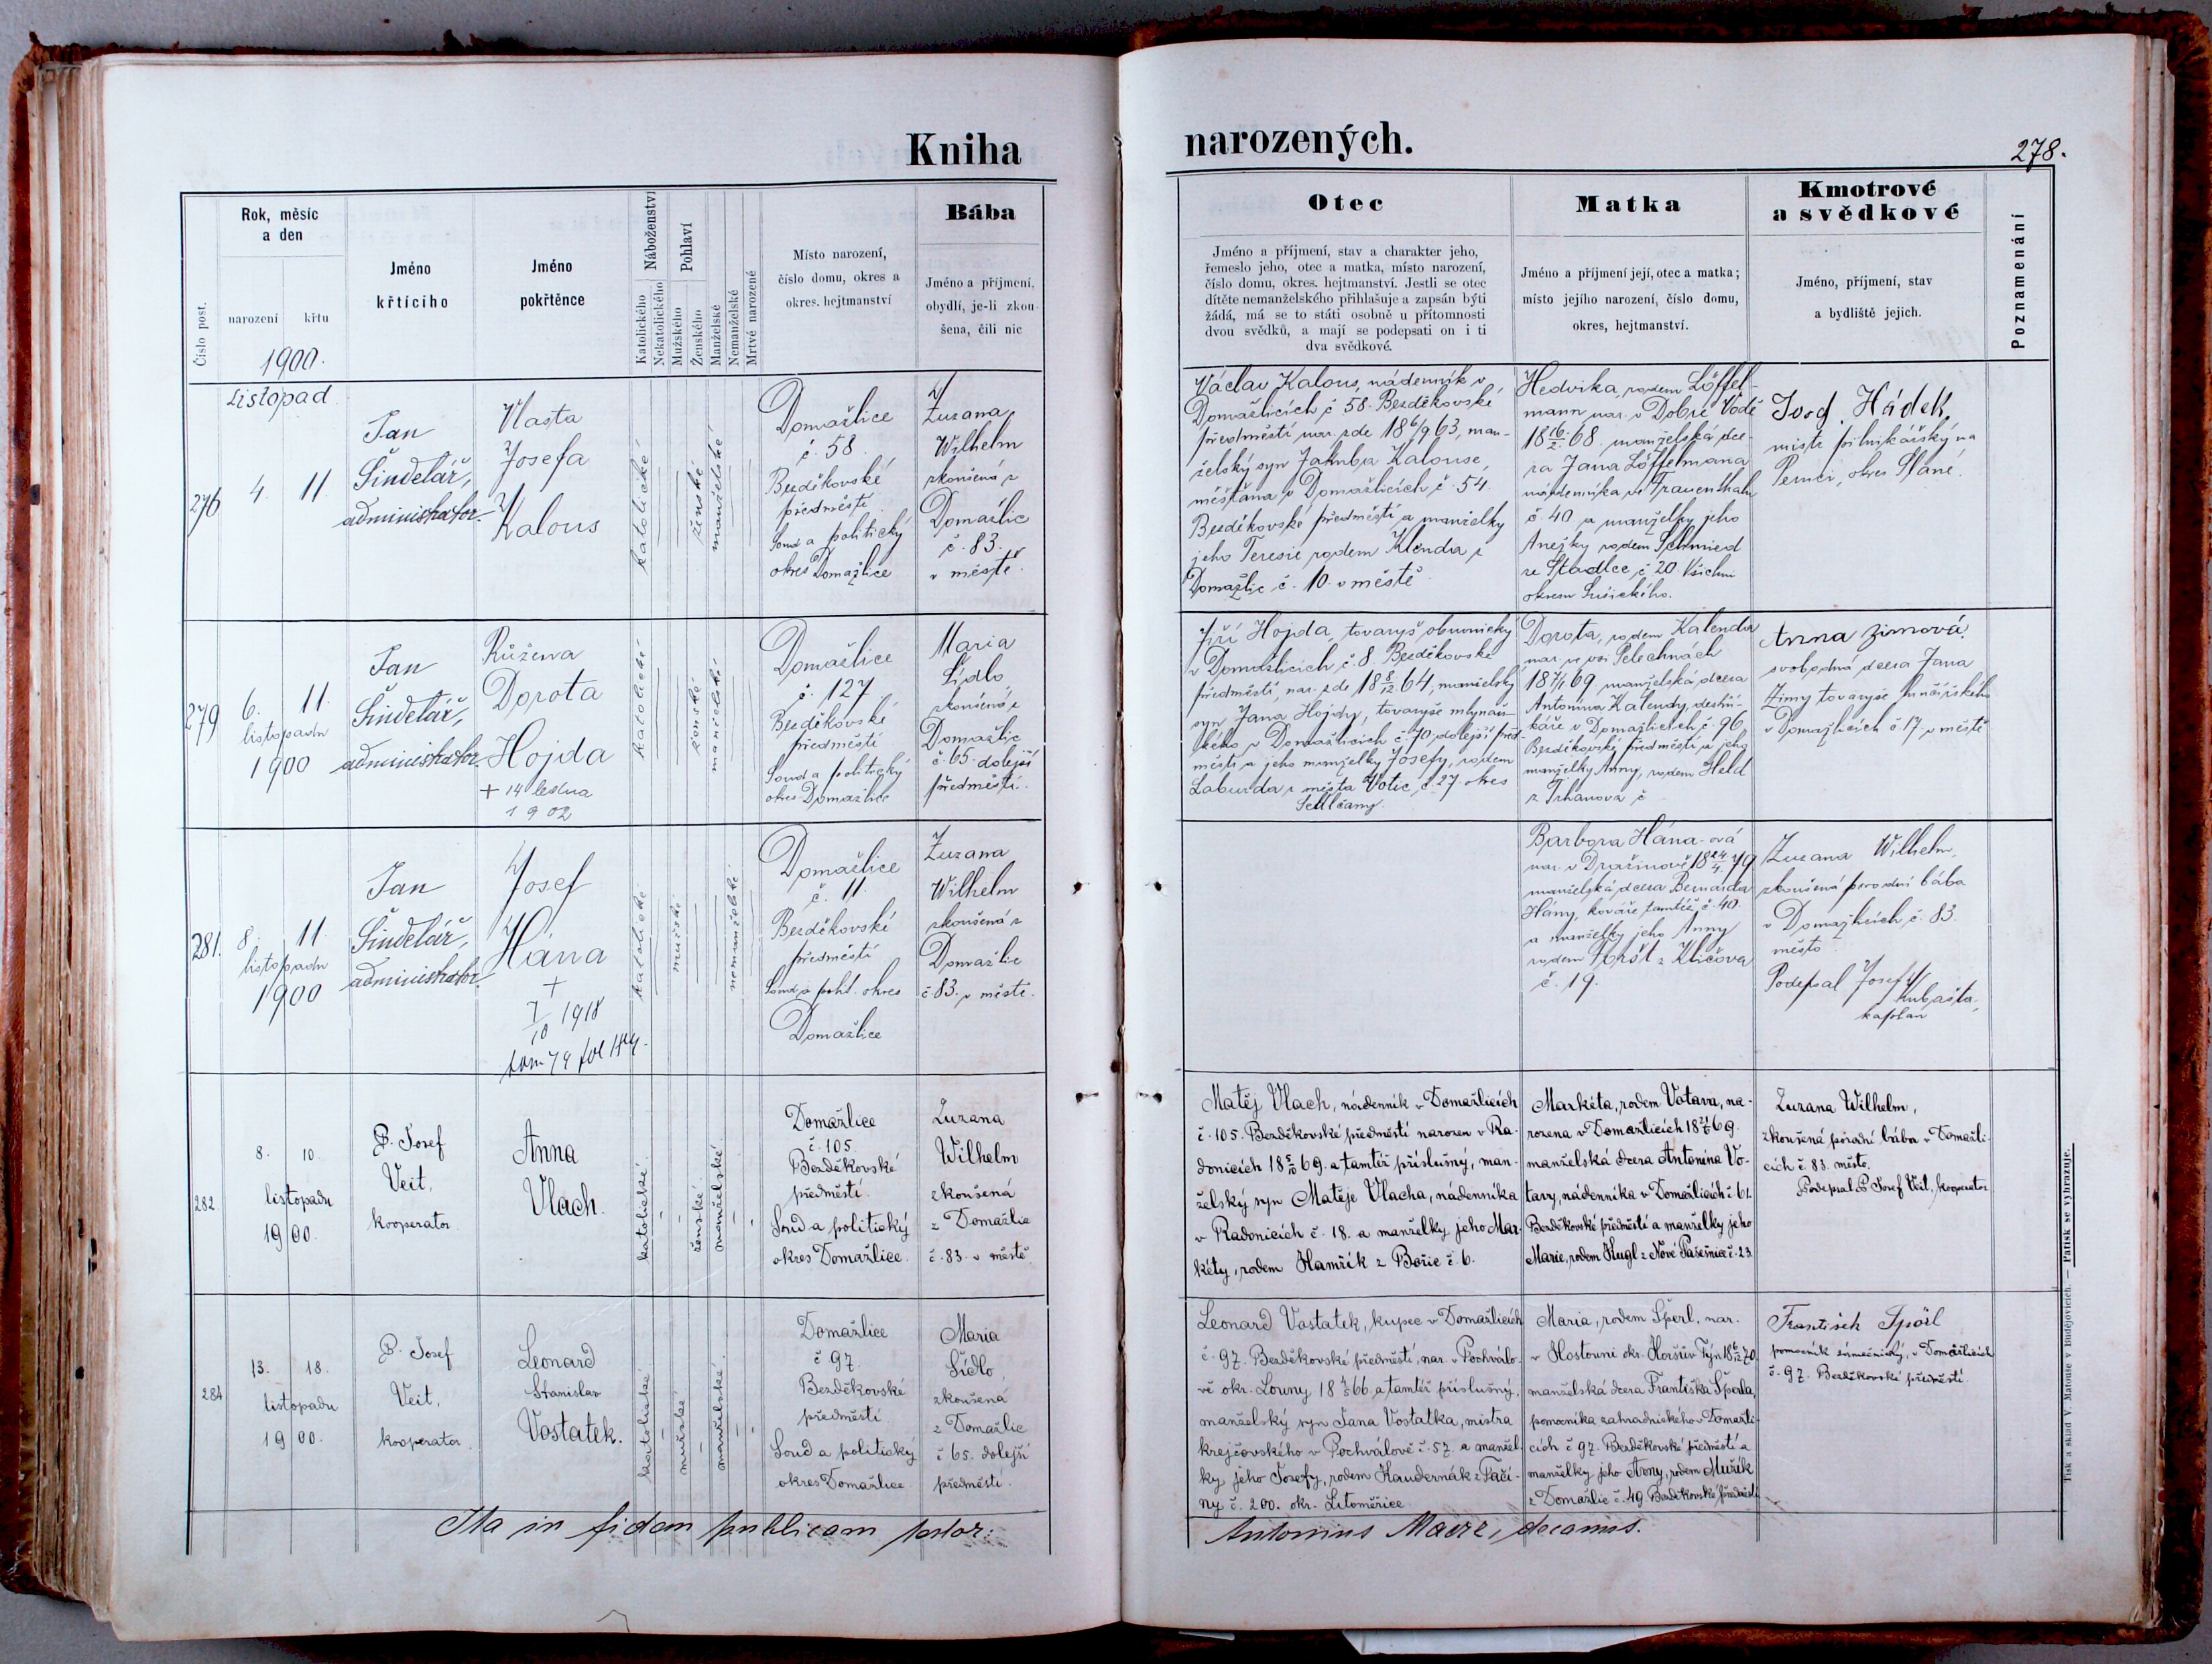 Kniha
narozených.
278.
Číslo post.
Rok, měsíc
a den
narození
křtu
1900.
Jméno
křtícího
Jméno
pokřtěnce
Náboženství
Katolického
Nekatolického
Pohlaví
Mužského
Ženského
Manželské
Nemanželské
Mrtvé narozené
Místo narození,
číslo domu, okres a
okres. hejtmanství
Bába
Jméno a příjmení,
obydlí, je-li zkou-
šena, čili nic
Otec
Jméno a příjmení, stav a charakter jeho,
řemeslo jeho, otec a matka, místo narození,
číslo domu, okres. hejtmanství. Jestli se otec
dítěte nemanželského přihlašuje a zapsán býti
žádá, má se to státi osobně u přítomnosti
dvou svědků, a mají se podepsati on i ti
dva svědkové.
Matka
Jméno a příjmení její, otec a matka;
místo jejího narození, číslo domu,
okres, hejtmanství.
Kmotrové
a svědkové
Jméno, příjmení, stav
a bydliště jejich.
Poznamenání
Listopad
276
4. 11.
Jan
Šindelář,
administrator.
Vlasta
Josefa
Kalous
katolické
ženské
manželské
Domažlice
č. 58.
Bezděkovské
předměstí
Soud a politický
okres Domažlice
Zuzana
Wilhelm
zkoušená z
Domažlic
č. 83.
v městě.
Václav Kalous, nádenník v
Domažlicích č 58. Bezděkovské
předměstí nar. zde 18 6/9 63, man-
želský syn Jakuba Kalouse,
měšťana v Domažlicích č. 54.
Bezděkovské předměstí a manželky
jeho Teresie rodem Klenda z
Domažlic č. 10. v městě.
Hedvika, rodem Löffel-
mann nar. v Dobré Vodě
18 16/2. 68. manželská dce-
ra Jana Löffelmana
nádenníka ve Frauenthalu
č. 40 a manželky jeho
Anežky rodem Schmied
ze Stadlce č 20. Všichni
okresu Sušického.
Josef Hádek,
mistr pilnikářský na
Peruci, okres Slané.
279
6. 11.
listopadu
1900
Jan
Šindelář,
administrator.
Růžena
Dorota
Hojda
+ 14 ledna
1902
katolické
ženské
manželské
Domažlice
č. 127
Bezděkovské
předměstí
Soud a politický
okres Domažlice
Maria
Šídlo
zkoušená z
Domažlic
č. 65. dolejší
předměstí.
Jiří Hojda, tovaryš obuvnický
v Domažlicích č. 8. Bezděkovské
předměstí, nar. zde 18 8/12. 64, manželský
syn Jana Hojdy, tovaryše mlynář-
ského v Domažlicích č. 70 dolejší před-
městí a jeho manželky Josefy, rodem
Laburda z města Votic, č. 27. okres
Sedlčany
Dorota, rodem Kalenda
nar. ve vsi Pelechnách
18 7/1 69 manželská dcera
Antonína Kalendy, deštní-
káře v Domažlicích č. 96
Bezděkovské předměstí a jeho
manželky Anny, rodem Held
z Trhanova č
Anna Zimová.
svobodná dcera Jana
Zimy tovaryše hrnčířského
v Domažlicích č. 17. v městě
281.
8. 11.
listopadu
1900
Jan
Šindelář,
administrator
Josef
Hána
+
7/10 1918
tom 74 fol 124.
katolické
mužské
nemanželské
Domažlice
č. 11.
Bezděkovské
předměstí
Soud a polit. okres
Domažlice
Zuzana
Wilhelm
zkoušená z
Domažlic
č 83. v městě.
Barbora Hána-ová
nar. v Dražinově 18 24/4. 79.
manželská dcera Bernarda
Hány, kováře tamtéž č. 40.
a manželky jeho Anny
rodem Foršt z Klíčova
č. 19.
Zuzana Wilhelm,
zkoušená porodní bába
v Domažlicích č. 83.
město
Podepsal Josef Kubašta,
kaplan
282.
8. 10.
listopadu
1900.
P. Josef
Veit,
kooperator.
Anna
Vlach.
katolické.
ženské.
manželské.
Domažlice
č. 105.
Bezděkovské
předměstí.
Soud a politický
okres Domažlice.
Zuzana
Wilhelm
zkoušená
z Domažlic
č. 83. v městě.
Matěj Vlach, nádenník v Domažlicích
č. 105. Bezděkovské předměstí narozen v Ra-
donicích 18 5/10 69. a tamtéž příslušný, man-
želský syn Matěje Vlacha, nádenníka
v Radonicích č. 18. a manželky jeho Mar-
kéty, rodem Hamřík z Bořic č. 6.
Markéta, rodem Votava, na-
rozena v Domažlicích 69.
manželská dcera Antonína Vo-
tavy, nádenníka v Domažlicích č. 61.
Bezděkovské předměstí a manželky jeho
Marie, rodem Kugl z Nové Pasečnice č. 23.
Zuzana Wilhelm,
zkoušená porodní bába v Domažli-
cích č 83. město.
Podepsal P. Josef Veit, kooperator
284
13. 18.
listopadu
1900.
P. Josef
Veit,
kooperator.
Leonard
Stanislav
Vostatek.
katolické.
mužské.
manželské.
Domažlice
č 97.
Bezděkovské
předměstí
Soud a politický
okres Domažlice.
Maria
Šídlo,
zkoušená
z Domažlic
č 65. dolejší
předměstí.
Leonard Vostatek, kupec v Domažlicích
č. 97. Bezděkovské předměstí, nar. v Pochválo-
vě okr. Louny 18 66, a tamtéž příslušný,
manželský syn Jana Vostatka, mistra
krejčovského v Pochválově č. 57. a manžel-
ky jeho Josefy, rodem Kaudernák z Tači-
ny č. 200. okr. Litoměřice.
Maria, rodem Šperl, nar.
v Hostouni okr. Horšův Týn 18 6/12 70.
manželská dcera Františka Šperla,
pomocníka zahradnického v Domažli-
cích č 97. Bezděkovské předměstí a
manželky jeho Anny, rodem Mužík
z Domažlic č. 49. Bezděkovské předměstí
František Spörl
pomocník v Domažlicích
č. 97. Bezděkovské předměstí.
Ita in fidem publicam testor:
Antonius Maerz, decanus.
Tisk a sklad V. Matouše v Budějovicích. — Patisk se vyhrazuje.